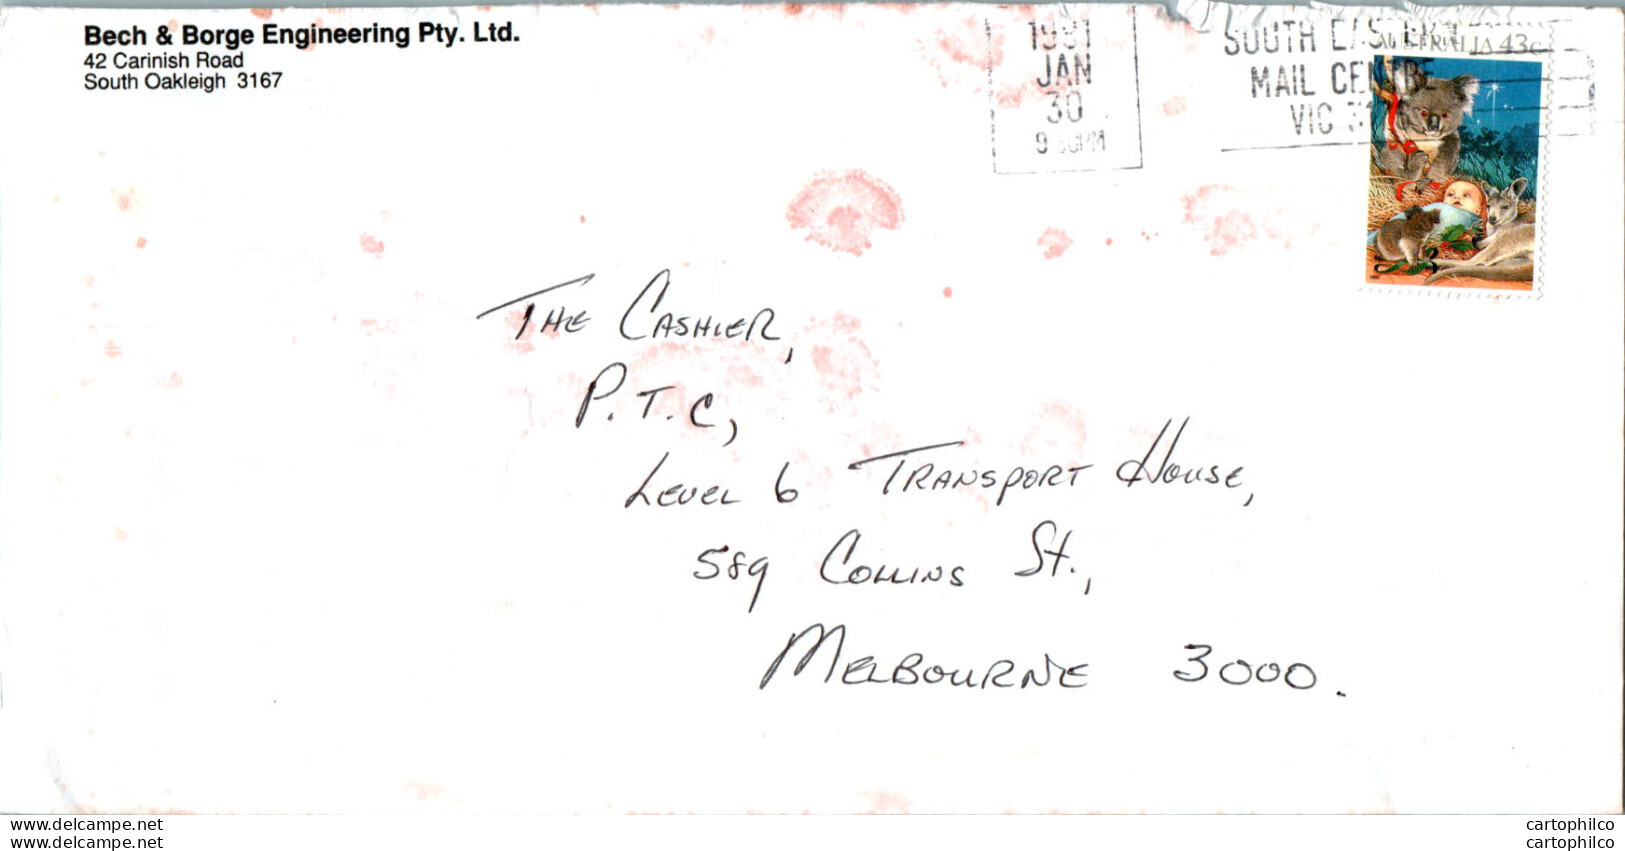 Bech & Borge Engineering Pty. Ltd.
42 Carinish Road
South Oakleigh 3167
1991
JAN
30
SOUTH EASTERN
MAIL CENTRE
VIC
AUSTRALIA 43c
THE CASHIER,
P.T.C,
LEVEL 6 TRANSPORT HOUSE,
589 COLLINS St.,
MELBOURNE 3000.
www.delcampe.net
www.delcampe.net
cartophilco
cartophilco